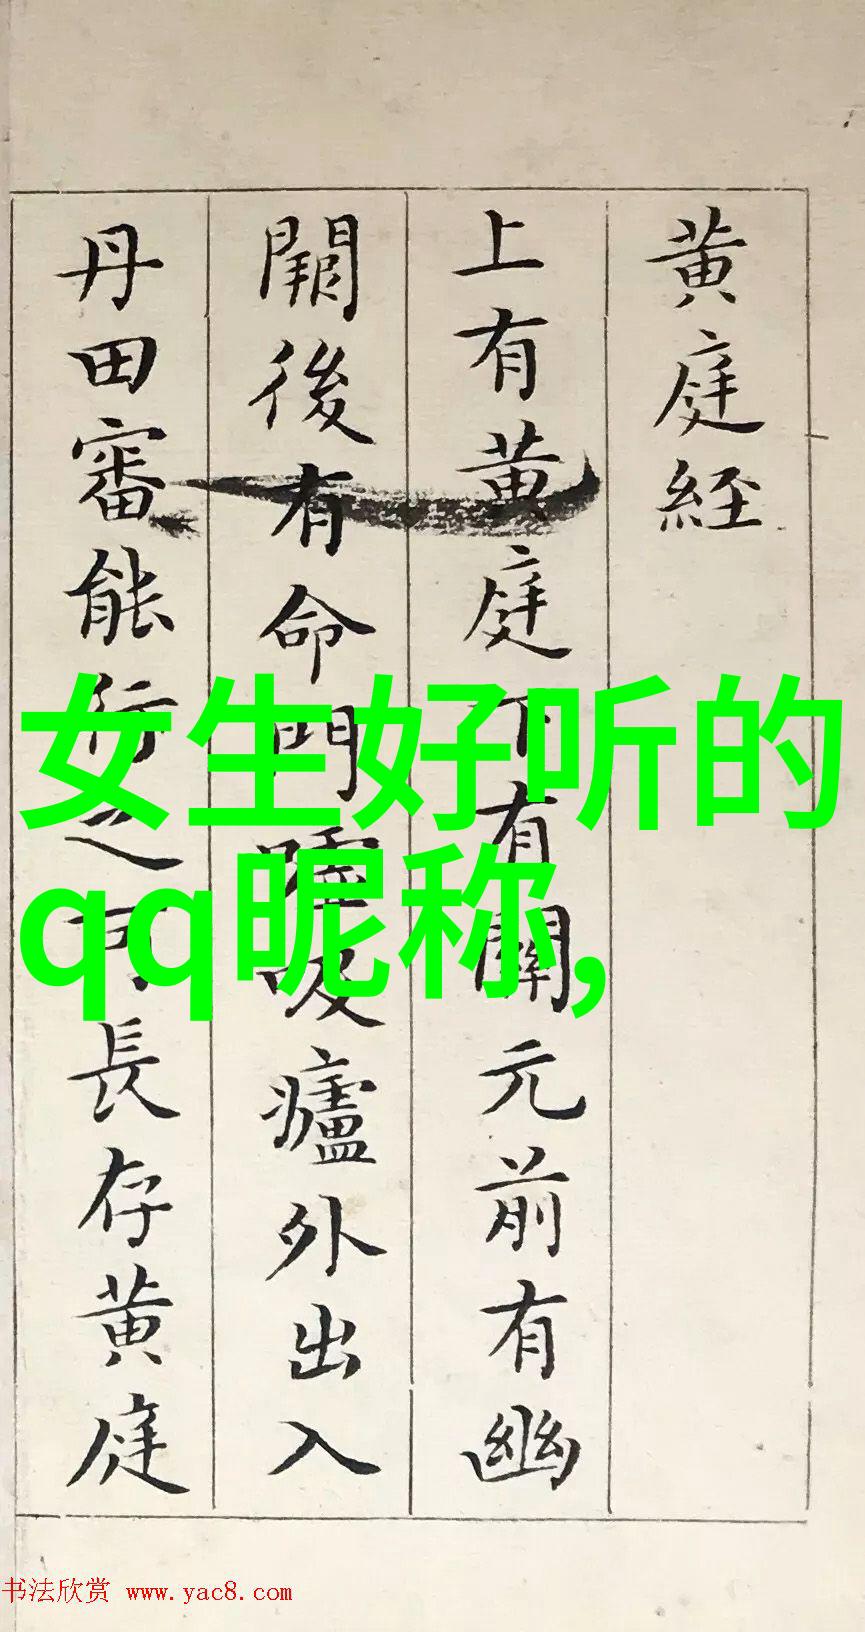 黄庭經
上有黄庭下有關元前有幽
闕後有命門嘘吸廬外出入
丹田審能行之可長存黄庭
女生好听的
qq昵称,
书法欣赏 www.yac8.com